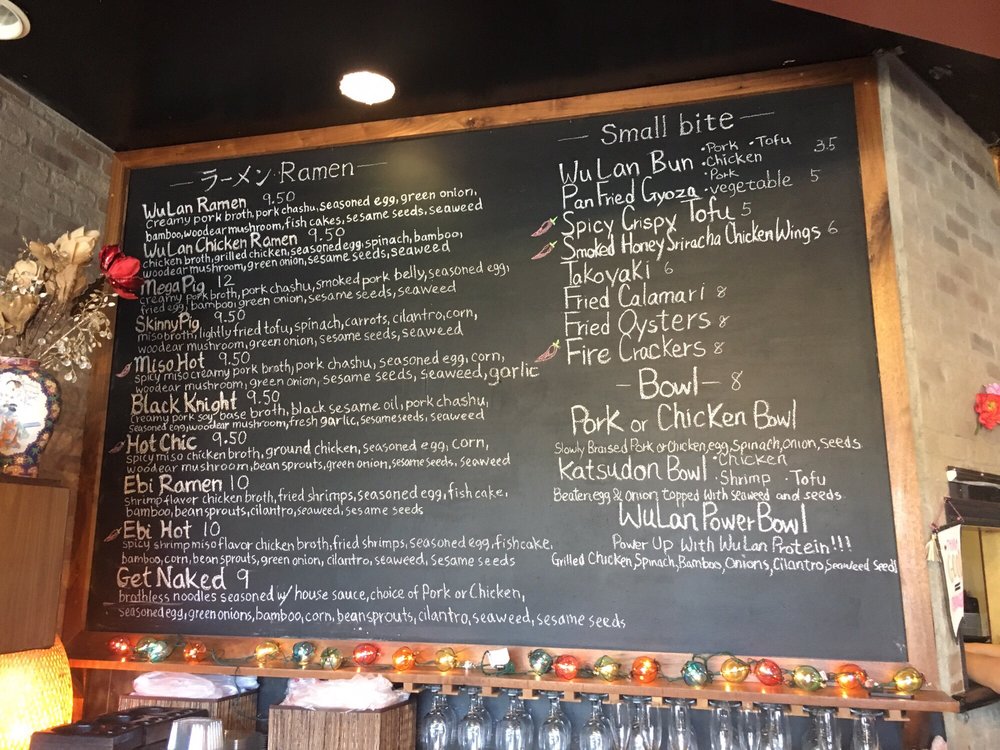 ラーメン Ramen
WuLan Ramen 9.50
creamy pork broth, pork chashu, seasoned egg, green onion,
bamboo, woodear mushroom, fish cakes, sesame seeds, seaweed
WuLan Chicken Ramen 9.50
chicken broth, grilled chicken, seasoned egg, spinach, bamboo,
woodear mushroom, green onion, sesame seeds, seaweed
Mega Pig 12
creamy pork broth, pork chashu, smoked pork belly, seasoned egg,
fried egg, bamboo, green onion, sesame seeds, seaweed
Skinny Pig 9.50
miso broth, lightly fried tofu, spinach, carrots, cilantro, corn,
woodear mushroom, green onion, sesame seeds, seaweed
Miso Hot 9.50
spicy miso creamy pork broth, pork chashu, seasoned egg, corn,
woodear mushroom, green onion, sesame seeds, seaweed, garlic
Black Knight 9.50
creamy pork soy base broth, black sesame oil, pork chashu,
seasoned egg, woodear mushroom, fresh garlic, sesame seeds, seaweed
Hot Chic 9.50
spicy miso chicken broth, ground chicken, seasoned egg, corn,
woodear mushroom, bean sprouts, green onion, sesame seeds, seaweed
Ebi Ramen 10
shrimp flavor chicken broth, fried shrimps, seasoned egg, fish cake,
bamboo, bean sprouts, cilantro, seaweed, sesame seeds
Ebi Hot 10
spicy shrimp miso flavor chicken broth, fried shrimps, seasoned egg, fishcake,
bamboo, corn, bean sprouts, green onion, cilantro, seaweed, sesame seeds
Get Naked 9
brothless noodles seasoned w/ house sauce, choice of Pork or Chicken,
seasoned egg, green onions, bamboo, corn, bean sprouts, cilantro, seaweed, sesame seeds
Small bite
WuLan Bun ·Pork ·Tofu ·Chicken 3.5
Pan Fried Gyoza ·Pork ·vegetable 5
Spicy Crispy Tofu 5
Smoked Honey Sriracha Chicken Wings 6
Takoyaki 6
Fried Calamari 8
Fried Oysters 8
Fire Crackers 8
Bowl 8
Pork or Chicken Bowl
Slowly Braised Pork or Chicken, egg, Spinach, onion, Seeds
Katsudon Bowl ·Chicken ·Shrimp ·Tofu
Beaten egg & onion topped with seaweed and seeds
WuLan Power Bowl
Power Up With WuLan Protein!!!
Grilled Chicken, Spinach, Bamboo, Onions, Cilantro, Seaweed Seeds